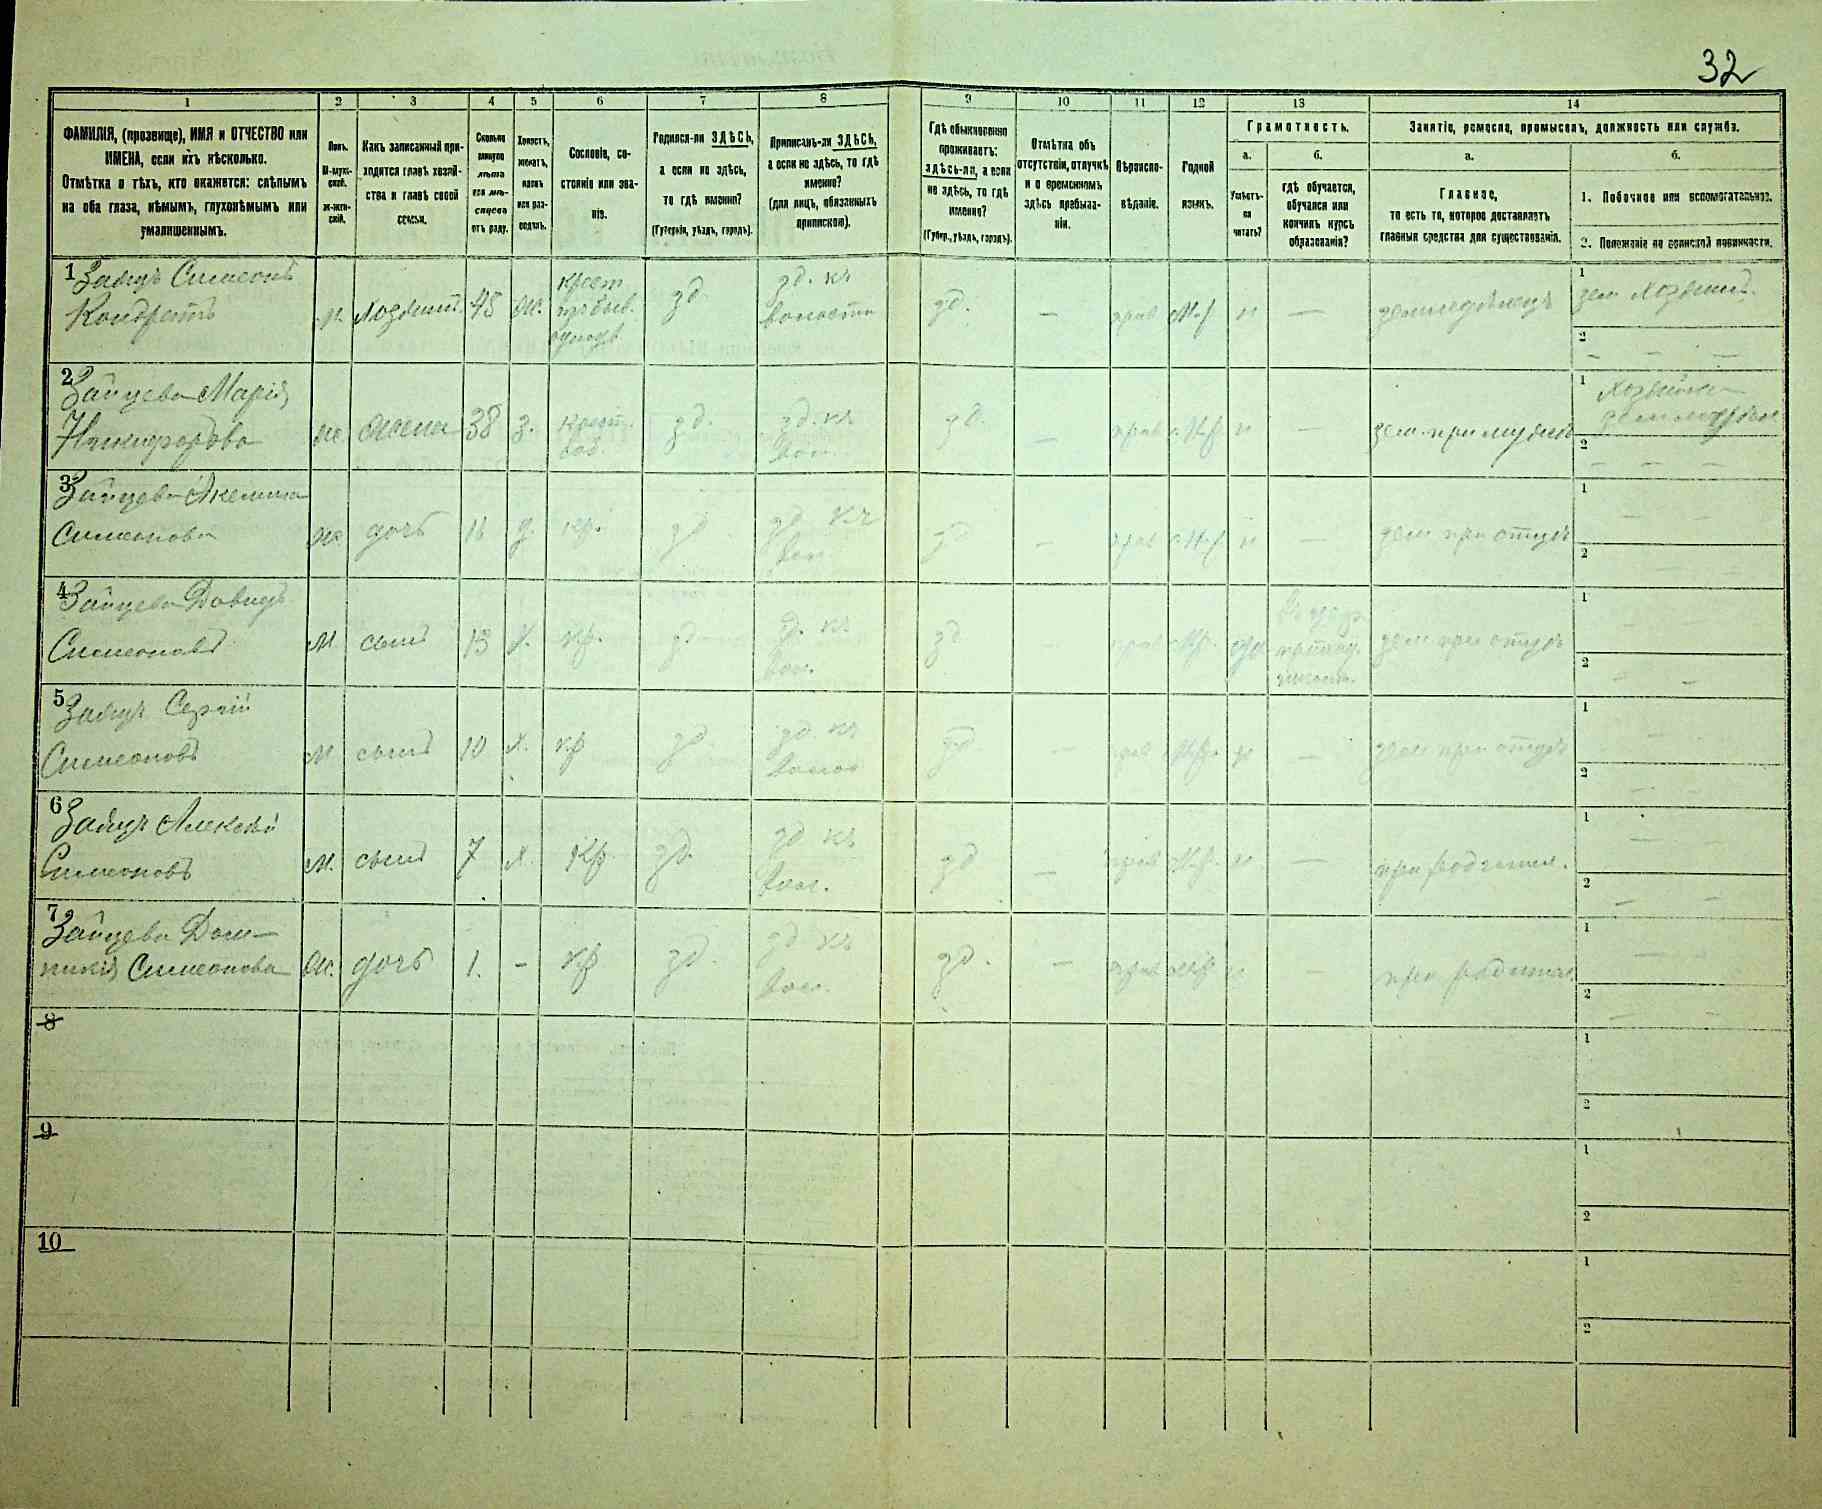 32
1 2 3 4 5 6 7 8 9 10 11 12 13 14
ФАМИЛІЯ, (прозвище), ИМЯ и ОТЧЕСТВО или
ИМЕНА, если ихъ нѣсколько.
Отмѣтка о тѣхъ, кто окажется: слѣпымъ
на оба глаза, нѣмымъ, глухонѣмымъ или
умалишеннымъ.
Полъ.
М-муж-
ской.
ж-жен-
скій.
Какъ записанный при-
ходится главѣ хозяй-
ства и главѣ своей
семьи.
Сколько
минуло
лѣтъ
или мѣ-
сяцевъ
отъ роду.
Холостъ,
женатъ,
вдовъ
или раз-
веденъ.
Сословіе, со-
стояніе или зва-
ніе.
Родился-ли ЗДѢСЬ,
а если не здѣсь,
то гдѣ именно?
(Губернія, уѣздъ, городъ).
Приписанъ-ли ЗДѢСЬ,
а если не здѣсь, то гдѣ
именно?
(для лицъ, обязанныхъ
припискою).
Гдѣ обыкновенно
проживаетъ:
здѣсь-ли, а если
не здѣсь, то гдѣ
именно?
(Губер., уѣздъ, городъ).
Отмѣтка объ
отсутствіи, отлучкѣ
и о временномъ
здѣсь пребыва-
ніи.
Вѣроиспо-
вѣданіе.
Родной
языкъ.
Грамотность.
а. б.
Умѣетъ-
ли
читать?
гдѣ обучается,
обучался или
кончилъ курсъ
образованія?
Занятіе, ремесло, промыселъ, должность или служба.
а. б.
Главное,
то есть то, которое доставляетъ
главныя средства для существованія.
1. Побочное или вспомогательное.
2. Положеніе по воинской повинности.
1 Заяцъ Симеонъ
Кондратовъ
м. Хозяинъ 45 ж. крест зд зд. къ волости зд. — прав н — земледѣлецъ
1 зем Хозяинъ.
2 — — —
2 Зайцева Марія
Никифорова
ж жена 38 з. зд. зд. къ вол. зд. — прав н — зем. при мужѣ
1 Хозяйка
2 — — —
3 Зайцева
Симеонова
ж. дочь 16 д. кр. зд зд къ вол. зд — прав н — зем при отцѣ
1 — —
2 — —
4 Зайцевъ Давидъ
Симеоновъ
М. сынъ 13 х. кр. зд зд. къ вол. зд — прав зем при отцѣ
1 — —
2 — —
5 Заяцъ Сергій
Симеоновъ
М сынъ 10 х. кр зд зд. къ волос зд — прав н — зем при отцѣ
1 — —
2 — —
6 Заяцъ Алексѣй
Симеоновъ
м. сынъ 7 х. кр зд. зд къ вол. зд — прав н — при родител.
1 — —
2 — —
7 Зайцева Дом-
никія Симеонова
ж. дочь 1. — кр зд. зд къ вол. зд. — прав н — при родител.
1 — —
2 — —
8
1
2
9
1
2
10
1
2